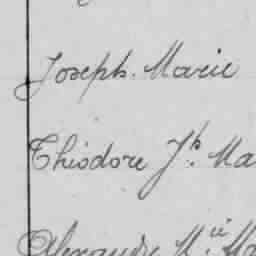 Joseph. Marie
Thiodore Jh. Ma
Alexandre M.ie Ma